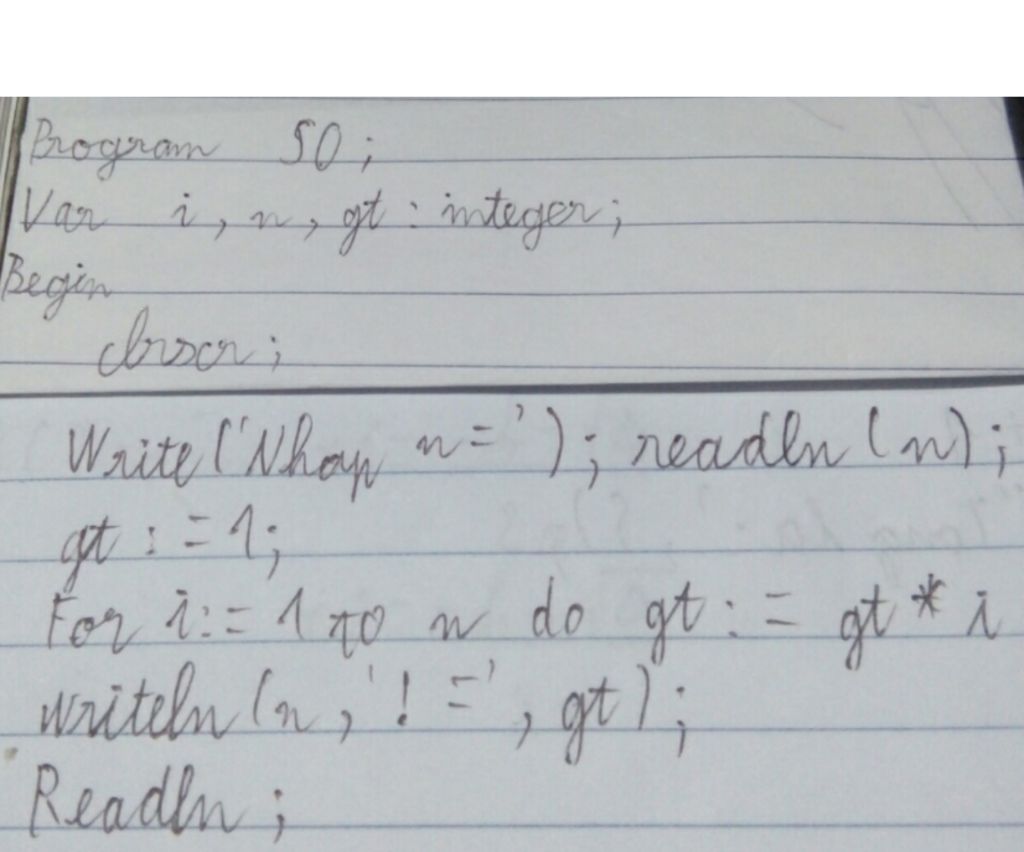 Program 50;
Var i, n, gt : integer;
Begin
clrscr;
Write('Nhap n=');readln(n);
gt := 1;
For i:= 1 to n do gt := gt * i
writeln(n,'!=', gt);
Readln;